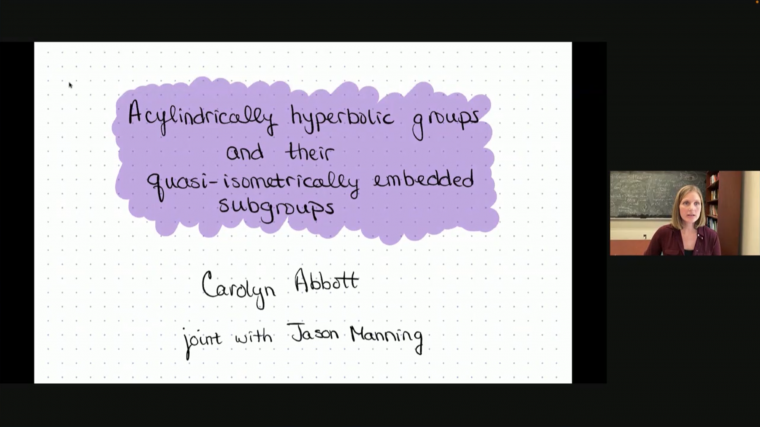 Acylindrically hyperbolic groups
and their
quasi-isometrically embedded
subgroups
Carolyn Abbott
joint with Jason Manning